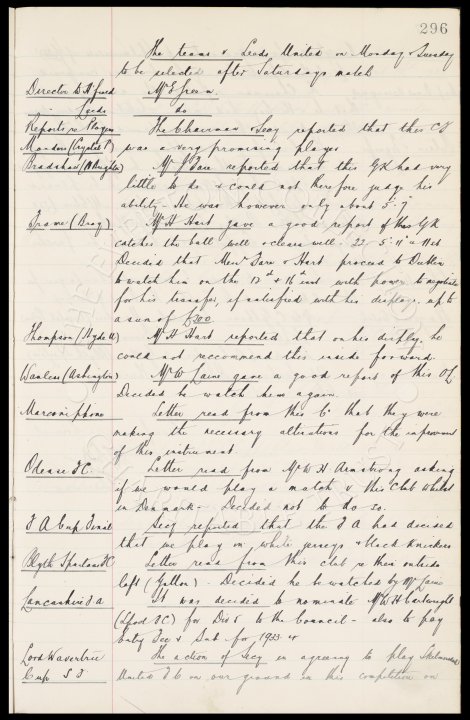 296
The teams v Leeds United on Monday & Tuesday
to be selected after Saturdays match
Director to H'field Mr E Green.
" " Leeds do
Reports re Players The Chairman & Secy reported that this CF
Manders (Crystal P) was a very promising player
Bradshaw (N Brighton) Mr J Fare reported that this GK had very
little to do & could not therefore judge his
ability. He was however only about 5. 7"
Frame (Bray) Mr H Hart gave a good report of this GK
catches the ball well & clears well. 22 5. 11" & 11 st
Decided that Messrs Fare & Hart proceed to Dublin
to watch him on the & 16th inst with power to negotiate
for his transfer, if satisfied with his display, up to
a sum of £300
Thompson (Hyde U) Mr H Hart reported that on his display he
could not reccommend this inside forward.
Wanless (Ashington) Mr W Laine gave a good report of this OL
Decided to watch him again.
Marconi phone Letter read from this Co that they were
making the necessary alterations for the improvement
of this instrument
Odense FC. Letter read from Mr W H Armstrong asking
if we would play a match v this Club whilst
in Denmark - Decided not to do so.
F A Cup Final Secy reported that the F A had decided
that we play in white jerseys & black knickers
Blyth Spartans FC Letter read from this club re their outside
left (Galton) - Decided he be watched by Mr Laine
Lancashire F A It was decided to nominate Mr W H Cartwright
(Lpool FC) for Div 5 to the Council - also to pay
Entry Fee & Sub - for 1933-4
Lord Wavertree The action of Secy in agreeing to play Skelmersdale
Cup S F United FC on our ground in this competition on